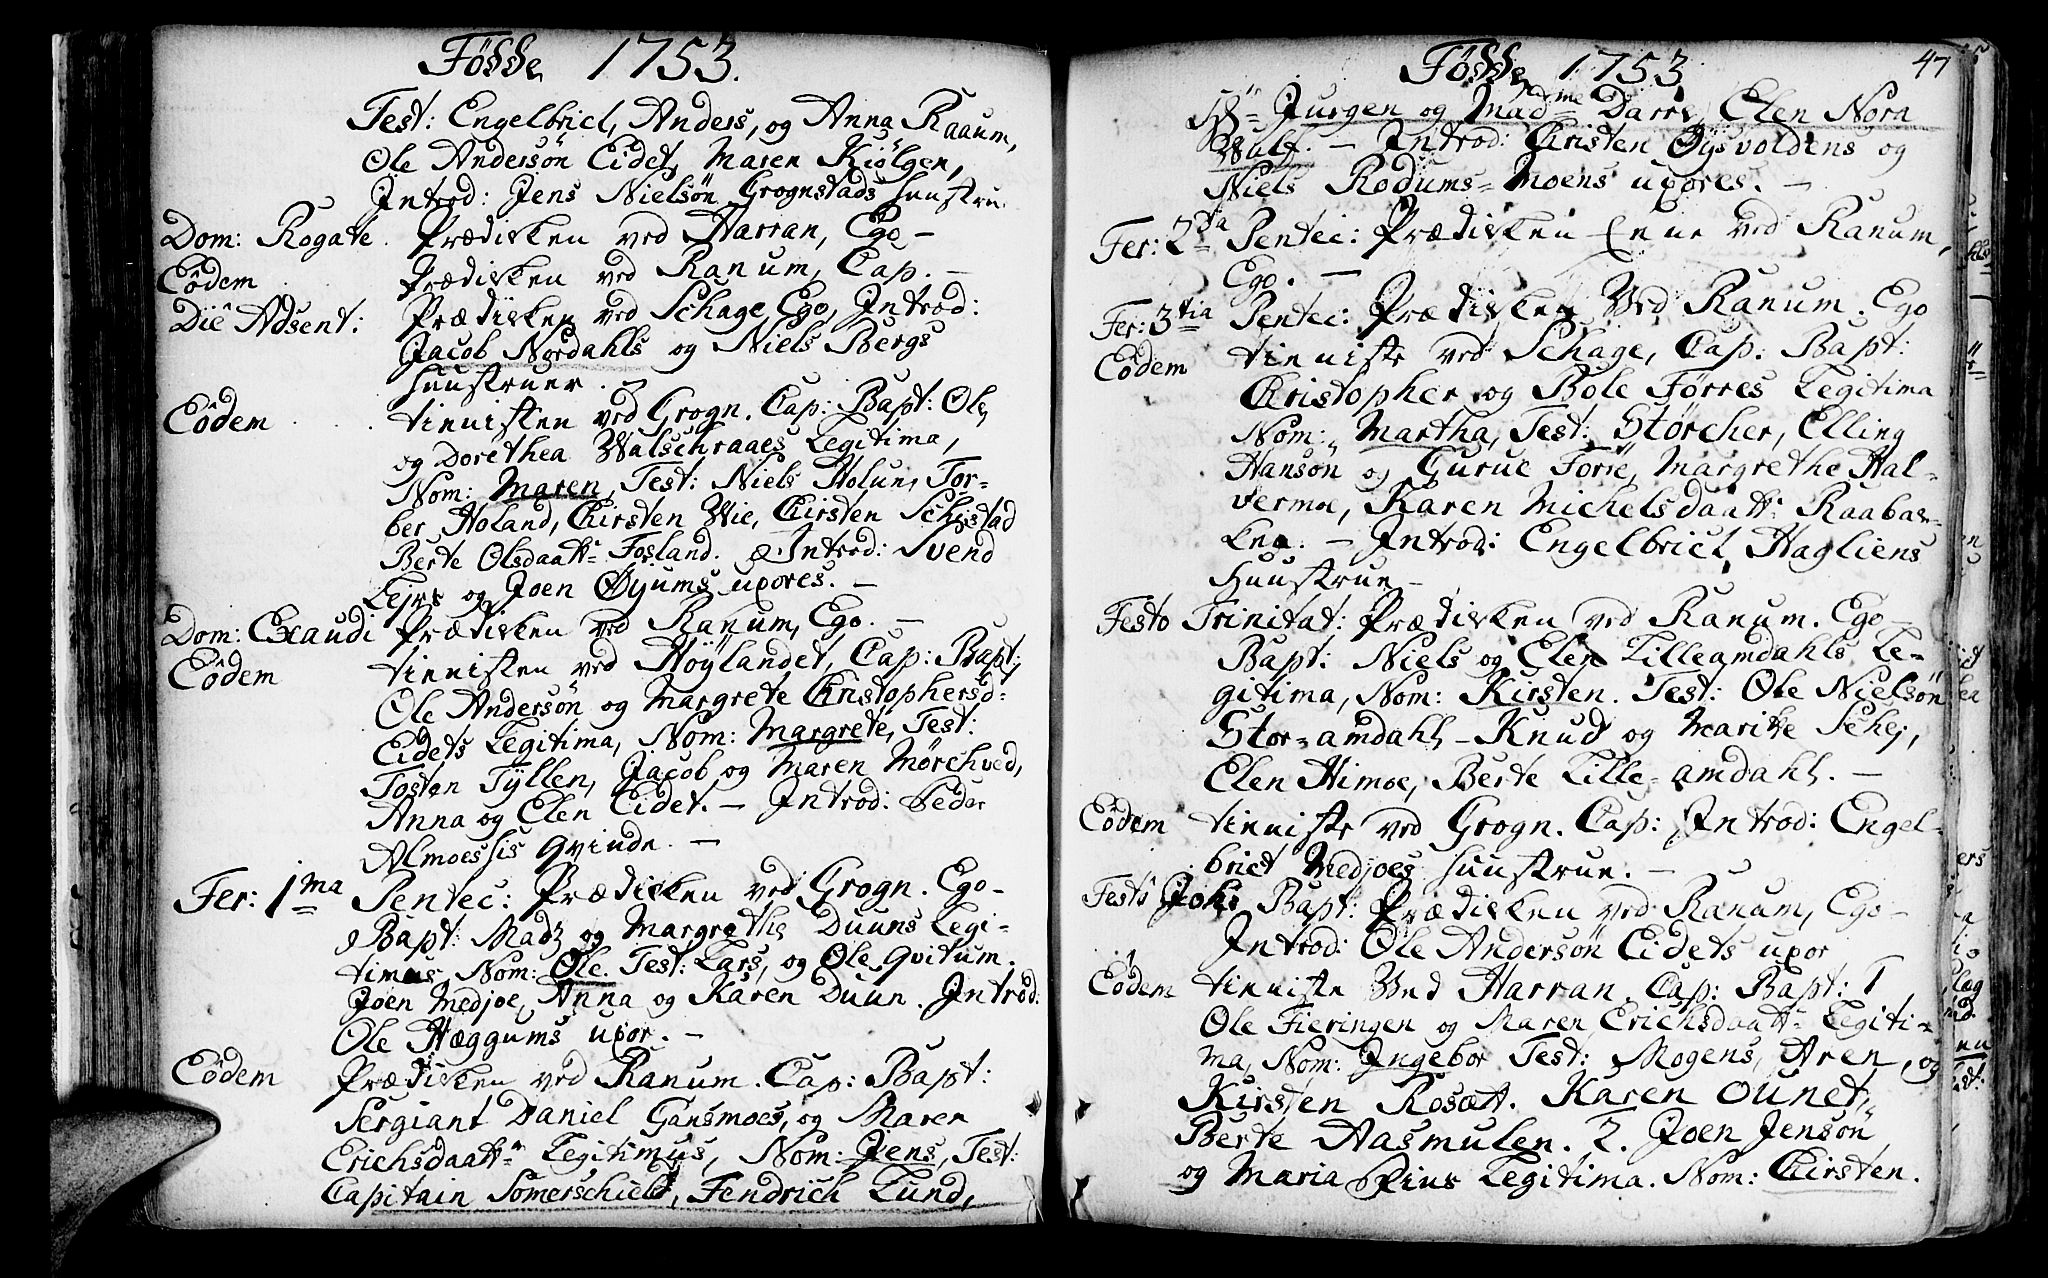 Födde 1753.
Test: Engelbricl, Anders, og Anna Raaum,
Ole Andersøn Eidet, Maren Kiølgen,
Introd: Jens Nielsøn Grognstads huustru
Dom: Rogate. Prædiken ved Harran, Ego –
Eodem Prædiken ved Ranum, Cap. –
Die Adsent: Prædiken ved Schage Ego, Introd:
Jacob Nordahls og Niels Bergs
huustruer.
Eodem tienisten ved Grogn. Cap: Bapt: Ole
og Dorethea Walschraaes Legitima,
Nom: Maren, Test: Niels Holun, Tor-
ber Holand, Chirsten Wie, Chirsten Schistad
Berte Olsdaatt: Fosland. Introd: Svend
Lejrs og Joen Øyums uxores. –
Dom: Exaudi Prædiken ved Ranum, Ego. –
Eodem tienisten ved Höylandet, Cap: Bapt:
Ole Andersøn og Margrete Christophersd:
Eidets Legitima, Nom: Margrete, Test:
Tosten Tyllen, Jacob og Maren Mørchved,
Anna og Elen Eidet. – Introd: Peder
Almoessis Qvinde. –
Fer: 1ma Pentec: Prædiken ved Grogn. Ego –
Bapt: Madz og Margrethe Duuns Legi-
timus, Nom: Ole. Test: Lars, og Ole Qvitum.
Joen Medjoe, Anna og Karen Duun. Introd:
Ole Hæggums uxor. –
Eodem Prædiken ved Ranum. Cap: Bapt:
Sergiant Daniel Gansmoes, og Maren
Erichsdaatt: Legitimus, Nom: Jens, Test:
Capitain Somerschield, Fendrich Lund,
Födde 1753 47
Hr Jurgen og Madme Darre, Elen Nora
Wulf. – Introd: Christen Øysvoldens og
Niels Rodums-Moens uxores. –
Fer: 2da Pentec: Prædiken Ene ved Ranum,
Ego. –
Fer: 3tia Pentec: Prædiken Ved Ranum. Ego
Eodem tieniste ved Schage, Cap: Bapt:
Christopher og Bole Førres Legitima
Nom: Martha, Test: Størcher, Elling
Hansøn og Gurue Forie, Margrethe Hal-
vermoe, Karen Michelsdaatt: Raabac-
ken. – Introd: Engelbricl Hagliens
Huustrue –
Festo Trinitat: Prædiken ved Ranum. Ego –
Bapt: Niels og Elen Lilleamdahls Le-
gitima, Nom: Kirsten. Test: Ole Nielsøn
Stor-amdahl – Knud og Marite Schej,
Elen Himoe, Berte Lille-amdahl. –
Eodem tieniste ved Grogn. Cap: Introd: Engel-
brict Medjoes huustrue. –
Festo Johs Bapt: Prædiken ved Ranum, Ego –
Introd: Ole Andersøn Eidets uxor
Eodem tieniste Ved Harran, Cap: Bapt: 1
Ole Fieringen og Maren Erichsdaatt: Legiti-
ma, Nom: Ingebor Test: Mogens, Aren, og
Kirsten Rosætt. Karen Ounet,
Berte Aasmulen. 2. Joen Jensøn
og Maria Pius Legitima. Nom: Chirsten.